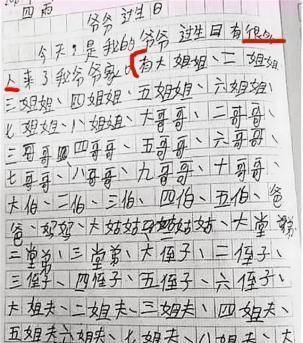 四
爷爷过生日
今天，是我的爷爷过生日有很多
人来了我爷爷家，有大姐姐、二姐姐、
三姐姐、四姐姐、五姐姐、六姐姐、
七姐姐、八姐姐、大哥哥、二哥哥、
三哥哥、四哥哥、五哥哥、六哥哥、
七哥哥、八哥哥、九哥哥、十哥哥、
大伯、二伯、三伯、四伯、五伯、爸
爸、妈妈、大姑姑、姑姑、大堂
二堂弟、三堂弟、大侄子、二侄子、
三侄子、四侄子、五侄子、六侄子、
大姐夫、二姐夫、三姐夫、四姐夫、
五姐夫、六姐夫、七姐夫、八姐夫、大